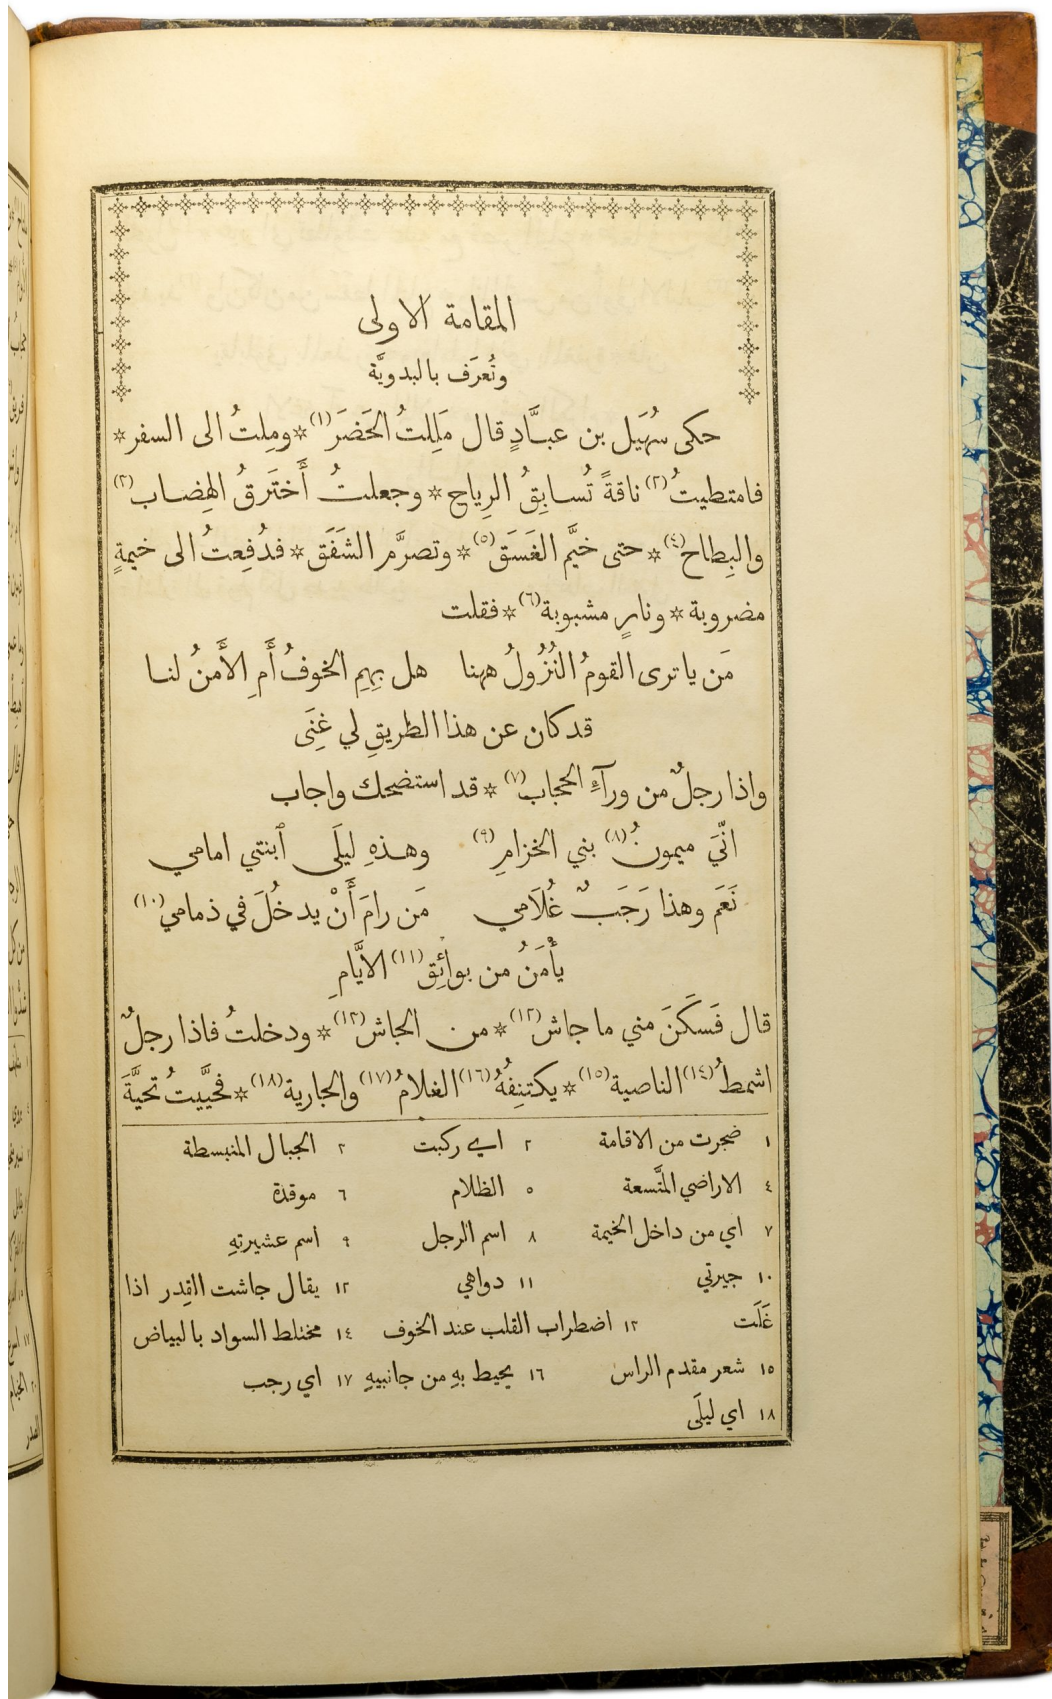 المقامة الاولى
وتُعرَف بالبدويَّة
حكى سُهَيل بن عبَّادٍ قال مَلِلتُ الحَضَرَ(١)* ومِلتُ الى السفر*
فامتطيتُ(٢) ناقةً تُسابِقُ الرِياح* وجعلتُ أَختَرِقُ الهِضاب(٣)
والبِطاح(٤)* حتى خيَّم الغَسَق(٥)* وتصرَّم الشَفَق* فدُفِعتُ الى خيمةٍ
مضروبة* ونارٍ مشبوبة(٦)* فقلت
مَن يا ترى القومُ النُزُولُ ههنا    هل بِهِمِ الخوفُ أَمِ الأَمنُ لنا
قد كان عن هذا الطريقِ لي غِنَى
واذا رجلٌ من ورآءِ الحجاب(٧)* قد استضحك واجاب
انّيَ ميمونُ(٨) بني الخزامِ(٩)    وهذهِ ليلَى ٱبنتي امامي
نَعَم وهذا رَجَبٌ غُلَامي    مَن رامَ أَنْ يدخُلَ في ذمامي(١٠)
يأْمَنُ من بوائِقِ(١١) الايَّامِ
قال فَسَكَنَ مني ما جاش(١٢)* من الجاش(١٣)* ودخلتُ فاذا رجلٌ
اشمطُ(١٤) الناصية(١٥)* يكتنِفهُ(١٦) الغلامُ(١٧) والجارية(١٨)* فحيَّيتُ تحيَّةَ
١ ضجرت من الاقامة    ٢ اي ركبت    ٣ الجبال المنبسطة
٤ الاراضي المتَّسعة    ٥ الظلام    ٦ موقدة
٧ اي من داخل الخيمة    ٨ اسم الرجل    ٩ اسم عشيرتهِ
١٠ جيرتي    ١١ دواهي    ١٢ يقال جاشت القِدر اذا
غَلَت    ١٣ اضطراب القلب عند الخوف    ١٤ مختلط السواد بالبياض
١٥ شعر مقدم الراس    ١٦ يحيط بهِ من جانبيهِ    ١٧ اي رجب
١٨ اي ليلَى